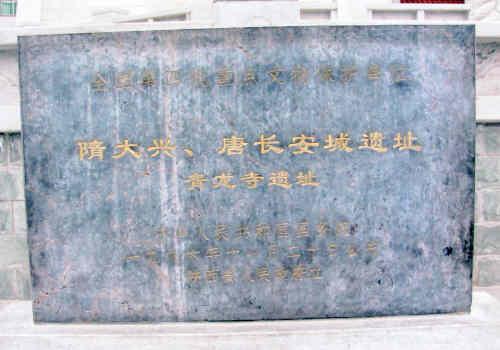 全国第四批重点文物保护单位
隋大兴、唐长安城遗址
青龙寺遗址
中华人民共和国国务院
一九九六年十一月二十日公布
陕西省人民政府立